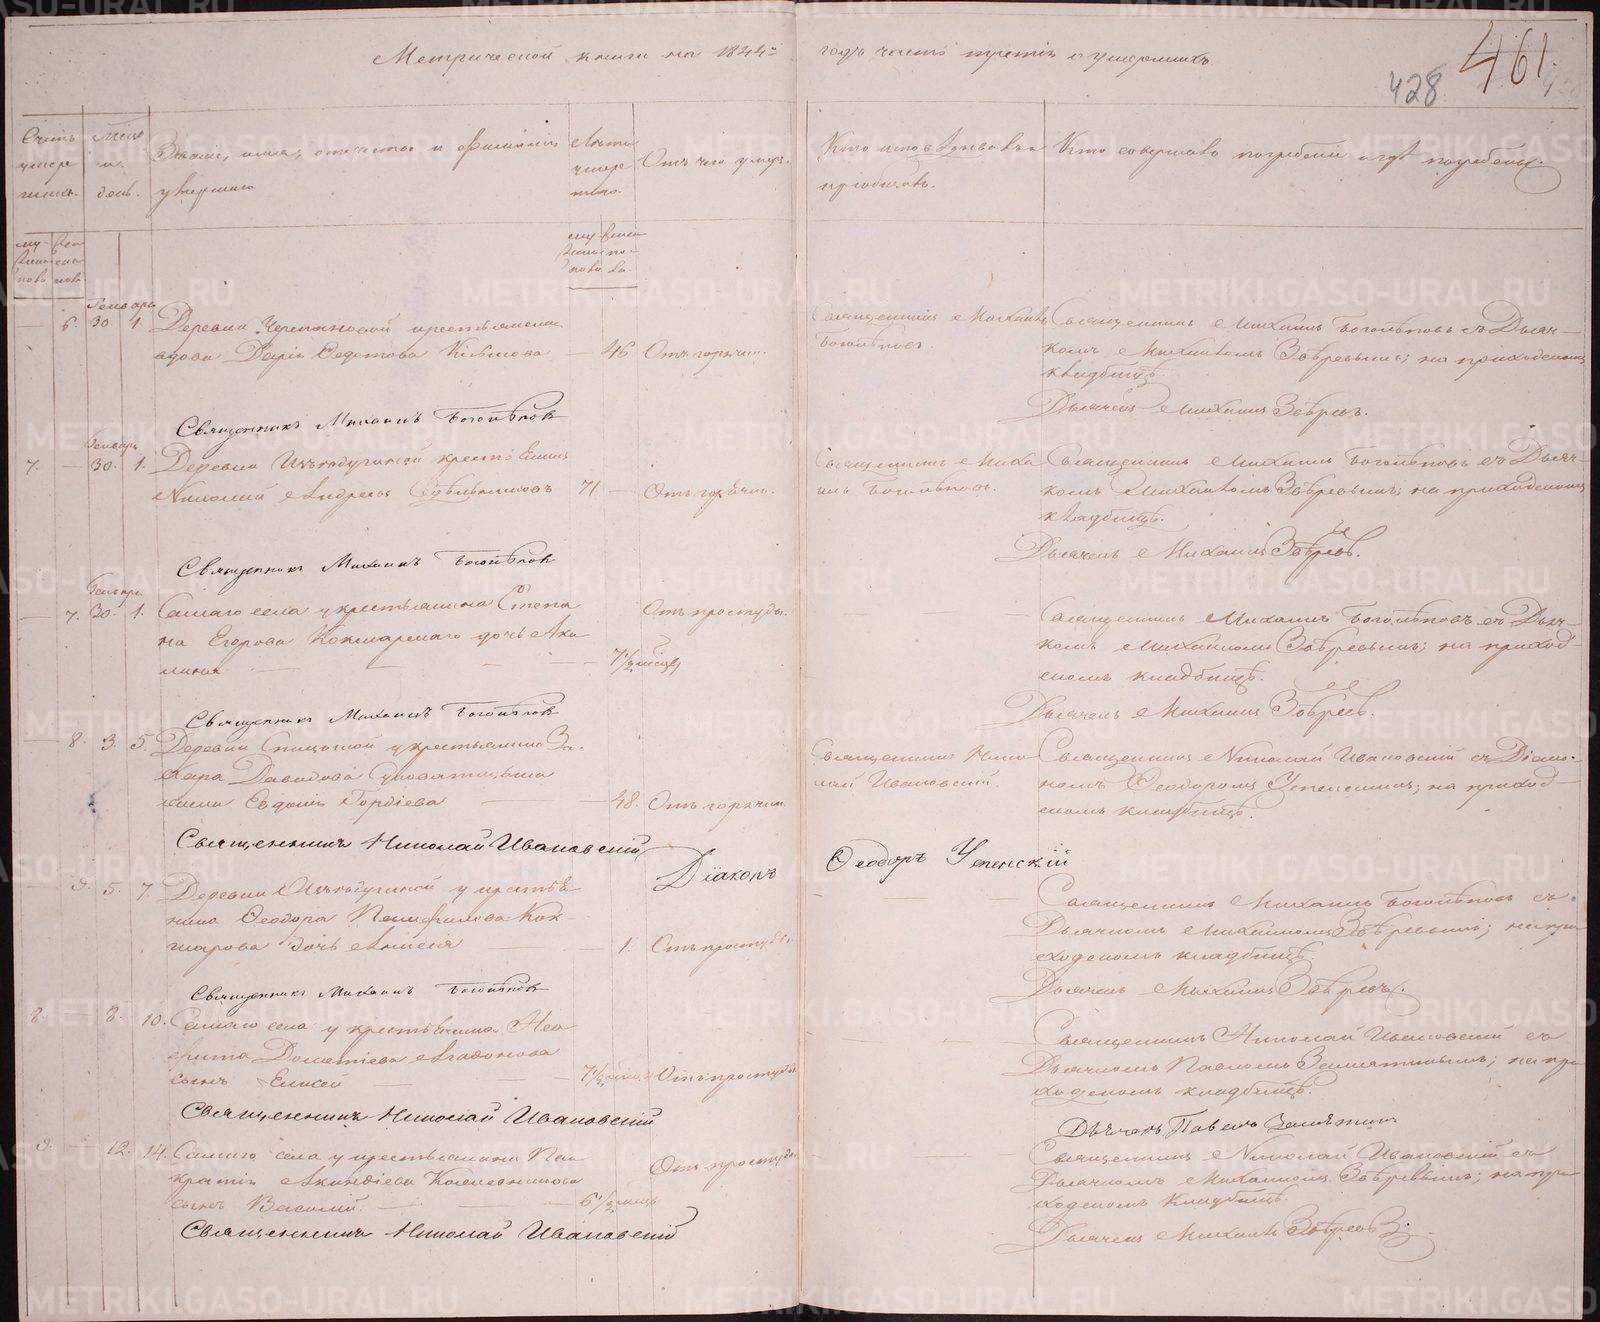 Метрической книги на 1844й годъ часть третія о умершихъ
461.
428
Счетъ умерших.
Мѣсяц и день.
Званіе, имя, отчество и фамилія
умершаго
Лѣта умершаго.
Отъ чего умеръ.
Кто исповѣдывалъ
и пріобщалъ.
Кто совершалъ погребеніе и гдѣ погребены.
Генварь
6. 30. 1. Деревни Черемновой крестьянская
вдова Дарія Федотова — 46 Отъ горячки.
Священникъ Михаилъ
Боголѣповъ.
Священникъ Михаилъ Боголѣповъ съ Дьяч-
комъ Михаиломъ Зобревымъ; на приходскомъ
кладбищѣ.
Дьячекъ Михаилъ Зобревъ.
Священникъ Михаилъ Боголѣповъ
Генварь
7. — 30. 1. Деревни
Николай Андреевъ 71 — Отъ горячки.
Священникъ Миха
илъ Боголѣповъ.
Священникъ Михаилъ Боголѣповъ съ Дьяч-
комъ Михаиломъ Зобревымъ; на приходскомъ
кладбищѣ.
Дьячекъ Михаилъ Зобревъ.
Священникъ Михаилъ Боголѣповъ
Генварь
— 7. 30. 1. Самаго села у крестьянина Степа
на Егорова Кокшарскаго дочь Аки
лина — 7 1/2 мѣсяц
Отъ простуды.
Священникъ Михаилъ Боголѣповъ съ Дьяч-
комъ Михаиломъ Зобревымъ; на приход-
скомъ кладбищѣ.
Дьячекъ Михаилъ Зобревъ.
Священникъ Михаилъ Боголѣповъ
— 8. 3. 5. Деревни у крестьянина За-
хара Давыдова
жена Евдокія Гордіева — 48. Отъ горячки
Священникъ Нико
лай Ивановскій.
Священникъ Николай Ивановскій съ Діако-
номъ Феодоромъ Успенскимъ; на приход-
скомъ кладбищѣ.
Священникъ Николай Ивановскій
Діаконъ Феодоръ Успенскій
9. 5. 7. Деревни у крестья
нина Феодора Памфилова Кок-
шарова дочь Анисія — 1. Отъ простуды.
Священникъ Михаилъ Боголѣповъ съ
Дьячкомъ Михаиломъ Зобревымъ; на при
ходскомъ кладбищѣ.
Дьячекъ Михаилъ Зобревъ.
Священникъ Михаилъ Боголѣповъ
8. — 8. 10. Самаго села у крестьянина
Дометіева
сынъ Елисей — 7 1/2 Отъ простуды
Священникъ Николай Ивановскій съ
Дьячкомъ Павломъ Замятинымъ; на при
ходскомъ кладбищѣ.
Дьячекъ Павелъ Замятинъ
Священникъ Николай Ивановскій
9. — 12. 14. Самаго села у крестьянина Пан
кратія Акиндіева
сынъ Василій. — 6 1/2 мѣсяц
Отъ простуды
Священникъ Николай Ивановскій съ
Дьячкомъ Михаиломъ Зобревымъ; на при
ходскомъ кладбищѣ.
Дьячекъ Михаилъ Зобревъ
Священникъ Николай Ивановскій
METRIKI.GASO-URAL.RU